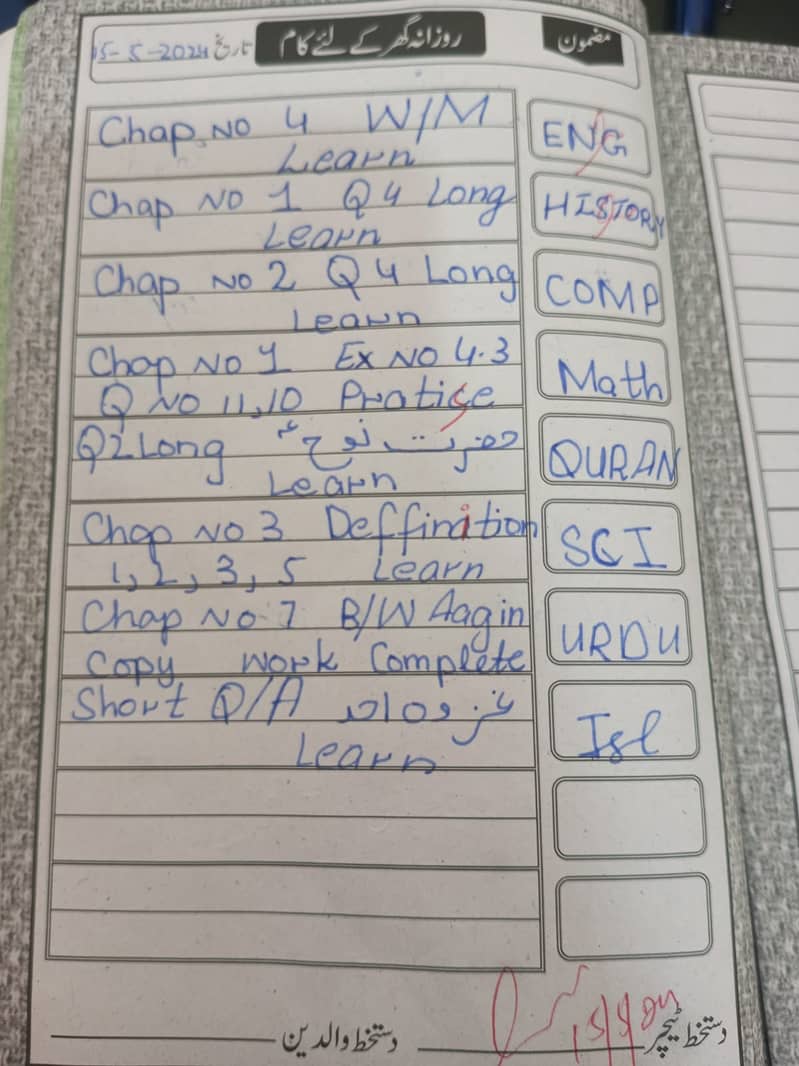 مضمون روزانہ گھر کے لئے کام تاریخ 15-5-2024
Chap NO 4 W/M ENG
Learn
Chap NO 1 Q4 Long HISTORY
Learn
Chap NO 2 Q4 Long COMP
Learn
Chap NO 1 Ex NO 4.3 Math
Q NO 11,10 Pratise
Q2 Long حضرت نوحؑ QURAN
Learn
Chap NO 3 Deffinition SCI
1, 2, 3, 5 Learn
Chap No 7 B/W Aagin URDU
Copy work Complete
Short Q/A غزوہ احد Isl
Learn
15/5/24
دستخط ٹیچر دستخط والدین